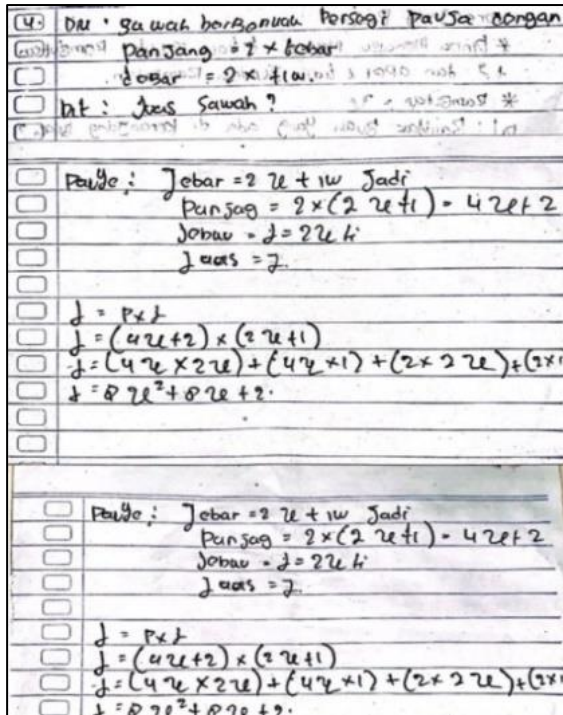 4. DIK : Sawah berbentuk Persegi panjang dengan
Panjang = 2 × lebar
Lebar = 2 x + 1 m.
Dit : Luas Sawah ?
Lebar = 2 x + 1 m Jadi
Panjag = 2 × (2 x + 1) = 4x + 2
Lebar = l = 2x
Luas = L.
L = P × l
L = (4x + 2) × (2x + 1)
L = (4x × 2x) + (4x × 1) + (2 × 2x) + (2×1
L = 8x² + 8x + 2.
Lebar = 2 x + 1 m Jadi
Panjag = 2 × (2 x + 1) = 4x + 2
Lebar = l = 2x
Luas = L.
L = P × l
L = (4x + 2) × (2x + 1)
L = (4x × 2x) + (4x × 1) + (2 × 2x) + (2×1
L = 8x² + 8x + 2.